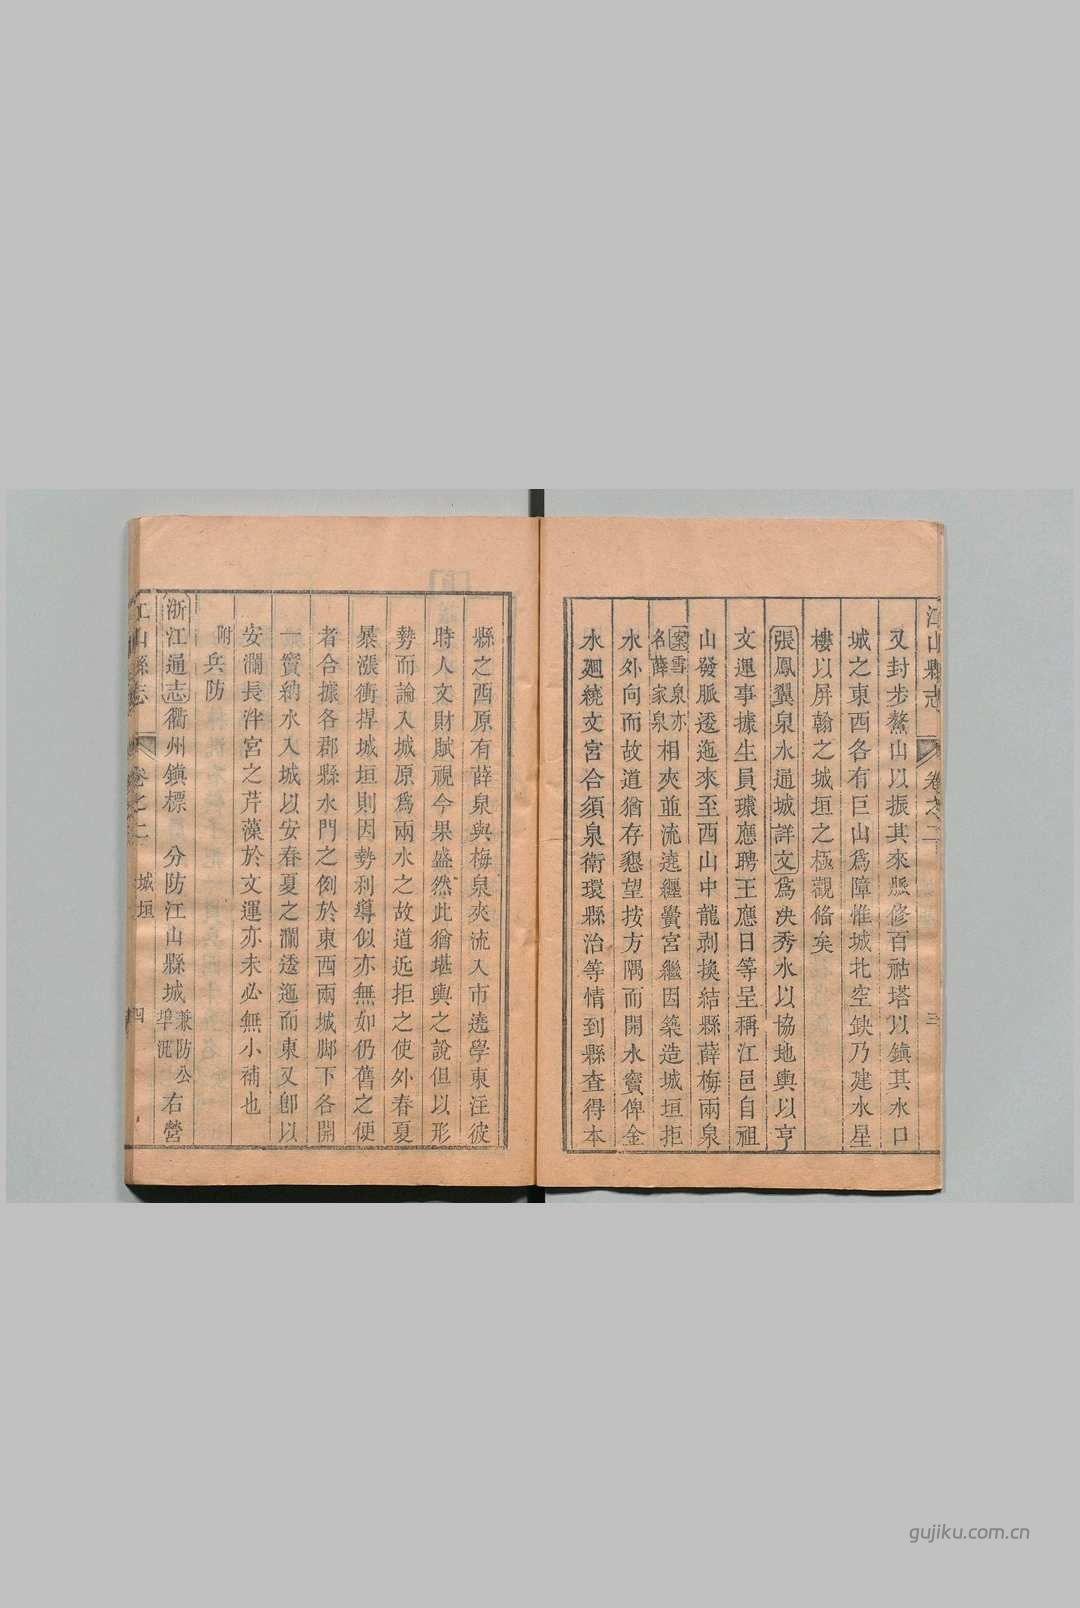 江山縣志 卷之二 三
又封步鰲山以振其來脈修百祜塔以鎮其水口
城之東西各有巨山為障惟城北空缺乃建水星
樓以屏翰之城垣之極觀俻矣
張鳳翼泉水通城詳文為决秀水以協地輿以亨
文運事據生員璩應聘王應日等呈稱江邑自祖
山發脈逶迤來至西山中龍剥換結縣薛梅兩泉
案雪泉亦名薛家泉相夾並流遶纏黌宮繼因築造城垣拒
水外向而故道猶存懇望按方隅而開水竇俾金
水廻繞文宮合須泉衛環縣治等情到縣查得本
縣之酉原有薛泉與梅泉夾流入市遶學東注彼
時人文財賦視今果盛然此猶堪輿之說但以形
勢而論入城原爲兩水之故道近拒之使外春夏
暴漲衝捍城垣則因勢利導似亦無如仍舊之便
者合據各郡縣水門之例於東西兩城脚下各開
一竇納水入城以安春夏之瀾逶迤而東又卽以
安瀾長泮宮之芹藻於文運亦未必無小補也
附兵防
浙江通志衢州鎮標 分防江山縣城兼防公埠汛右營
江山縣志 卷之二 城垣 四
gujiku.com.cn